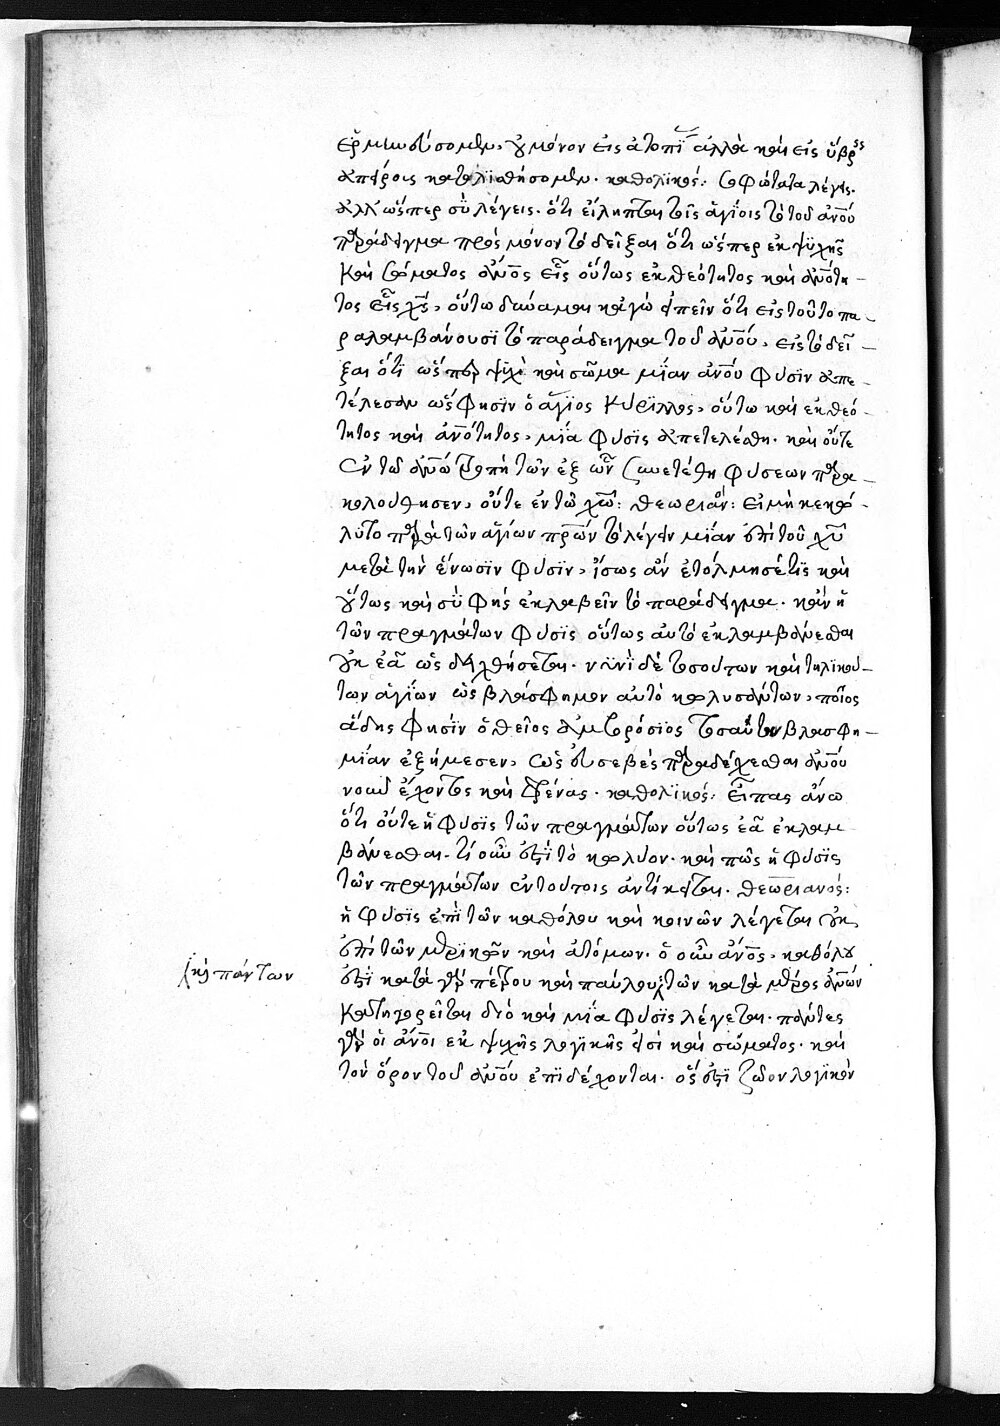 ἑρμηνεύσομεν, οὐ μόνον εἰς ἀτοπί ἀλλὰ καὶ εἰς ὕβρεις
ἀπείρους κατολισθήσομεν. καθολικός: σοφώτατα λέγεις.
ἀλλ' ὥσπερ σὺ λέγεις. ὅτι εἴληπται τοῖς ἁγίοις τὸ τοῦ ἀνου
παράδειγμα πρὸς μόνον τὸ δεῖξαι ὅτι ὥσπερ ἐκ ψυχῆς
καὶ σώματος ἄνος εἷς οὕτως ἐκ θεότητος καὶ ἀνότη-
τος εἷς χς, οὕτω δύναμαι καγὼ εἰπεῖν ὅτι εἰς τοῦτο πα-
ραλαμβάνουσι τὸ παράδειγμα τοῦ ἀνου, εἰς τὸ δεῖ-
ξαι ὅτι ὥσπερ ψυχὴ καὶ σῶμα μίαν ἀνου φύσιν ἀπε-
τέλεσαν ὥς φησὶν ὁ ἅγιος κύριλλος, οὕτω καὶ ἐκ θεό-
τητος καὶ ἀνότητος, μία φύσις ἀπετελέσθη. καὶ οὔτε
ἐν τῶ ἀνω τροπὴ τῶν ἐξ ὧν συνετέθη φύσεων παρα-
κολούθησεν, οὔτε ἐν τῶ χω: θεωριαν: εἰ μὴ κεκώ-
λυτο παρὰ τῶν ἁγίων πρων τὸ λέγειν μίαν ἐπὶ τοῦ χυ
μετὰ τὴν ἕνωσιν φύσιν, ἴσως ἂν ἐτόλμησέ τις καὶ
οὕτως καὶ σὺ φὴς ἐκλαβεῖν τὸ παράδειγμα. κἂν ἡ
τῶν πραγμάτων φύσις οὕτως αὐτὸ ἐκλαμβάνεσθαι
οὐκ ἐᾶ ὡς δειχθήσεται. νυνὶ δὲ τοσούτων καὶ τηλικού-
των ἁγίων ὡς βλάσφημον αὐτὸ κωλυσάντων, ποῖος
ἅδης φησὶν ὁ θεῖος ἀμβρόσιος τοσαύτην βλασφη-
μίαν ἐξήμεσεν, ὡς εὐσεβὲς παραδέχεσθαι ἀνου
νοῦν ἔχοντος καὶ φρένας. καθολικός: εἶπας ἄνω
ὅτι οὔτε ἡ φύσις τῶν πραγμάτων οὕτως ἐᾶ ἐκλαμ-
βάνεσθαι. τί οὖν ἐστι τὸ κωλύον. καὶ πῶς ἡ φύσις
τῶν πραγμάτων ἐν τούτοις ἀντίκειται. θεωριανός:
ἡ φύσις ἐπὶ τῶν καθόλου καὶ κοινῶν λέγεται οὐκ
ἐπὶ τῶν μερικῶν καὶ ἀτόμων. ὁ οὖν ἄνος, καθόλου
ἐστὶ κατὰ γὰρ πέτρου καὶ παύλου τῶν κατὰ μέρος ἀνων
καὶ πάντων
κατηγορεῖται διὸ καὶ μία φύσις λέγεται. πάντες
γὰρ οἱ ἄνοι ἐκ ψυχῆς λογικῆς εἰσὶ καὶ σώματος. καὶ
τὸν ὅρον τοῦ ἀνου ἐπιδέχονται. ὅς ἐστι ζῶον λογικὸν